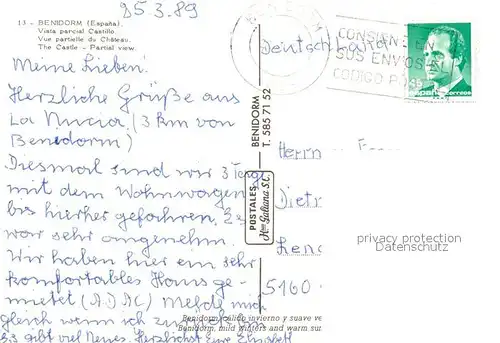 25.3.89
13 - BENIDORM (España).
Vista parcial Castillo.
Vue partielle du Château.
The Castle - Partial view.
Meine Lieben!
Herzliche Grüße aus
La Nucia (3 km von
Benidorm)
Diesmal sind wir 3 Tage
mit dem Wohnwagen
bis hierher gefahren. Es
war sehr angenehm.
Wir haben hier ein sehr
komfortables Haus ge-
mietet (ADAC) Melde mich
gleich wenn ich zurück bin
Es gibt viel Neues. Herzlichst Eure Elisabeth
POSTALES
Hnos Galiana S.L.
BENIDORM
T. 585 71 52
CONSIGNE EN
SUS ENVIOS
CODIGO POS
Correos
Deutschland
Herrn
Dietr
5160
privacy protection
Datenschutz
Benidorm, cálido invierno y suave ve
Benidorm, mild winters and warm su